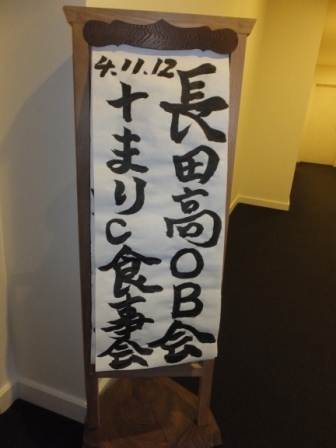 長田高OB会
4.11.12
十まりC食事会